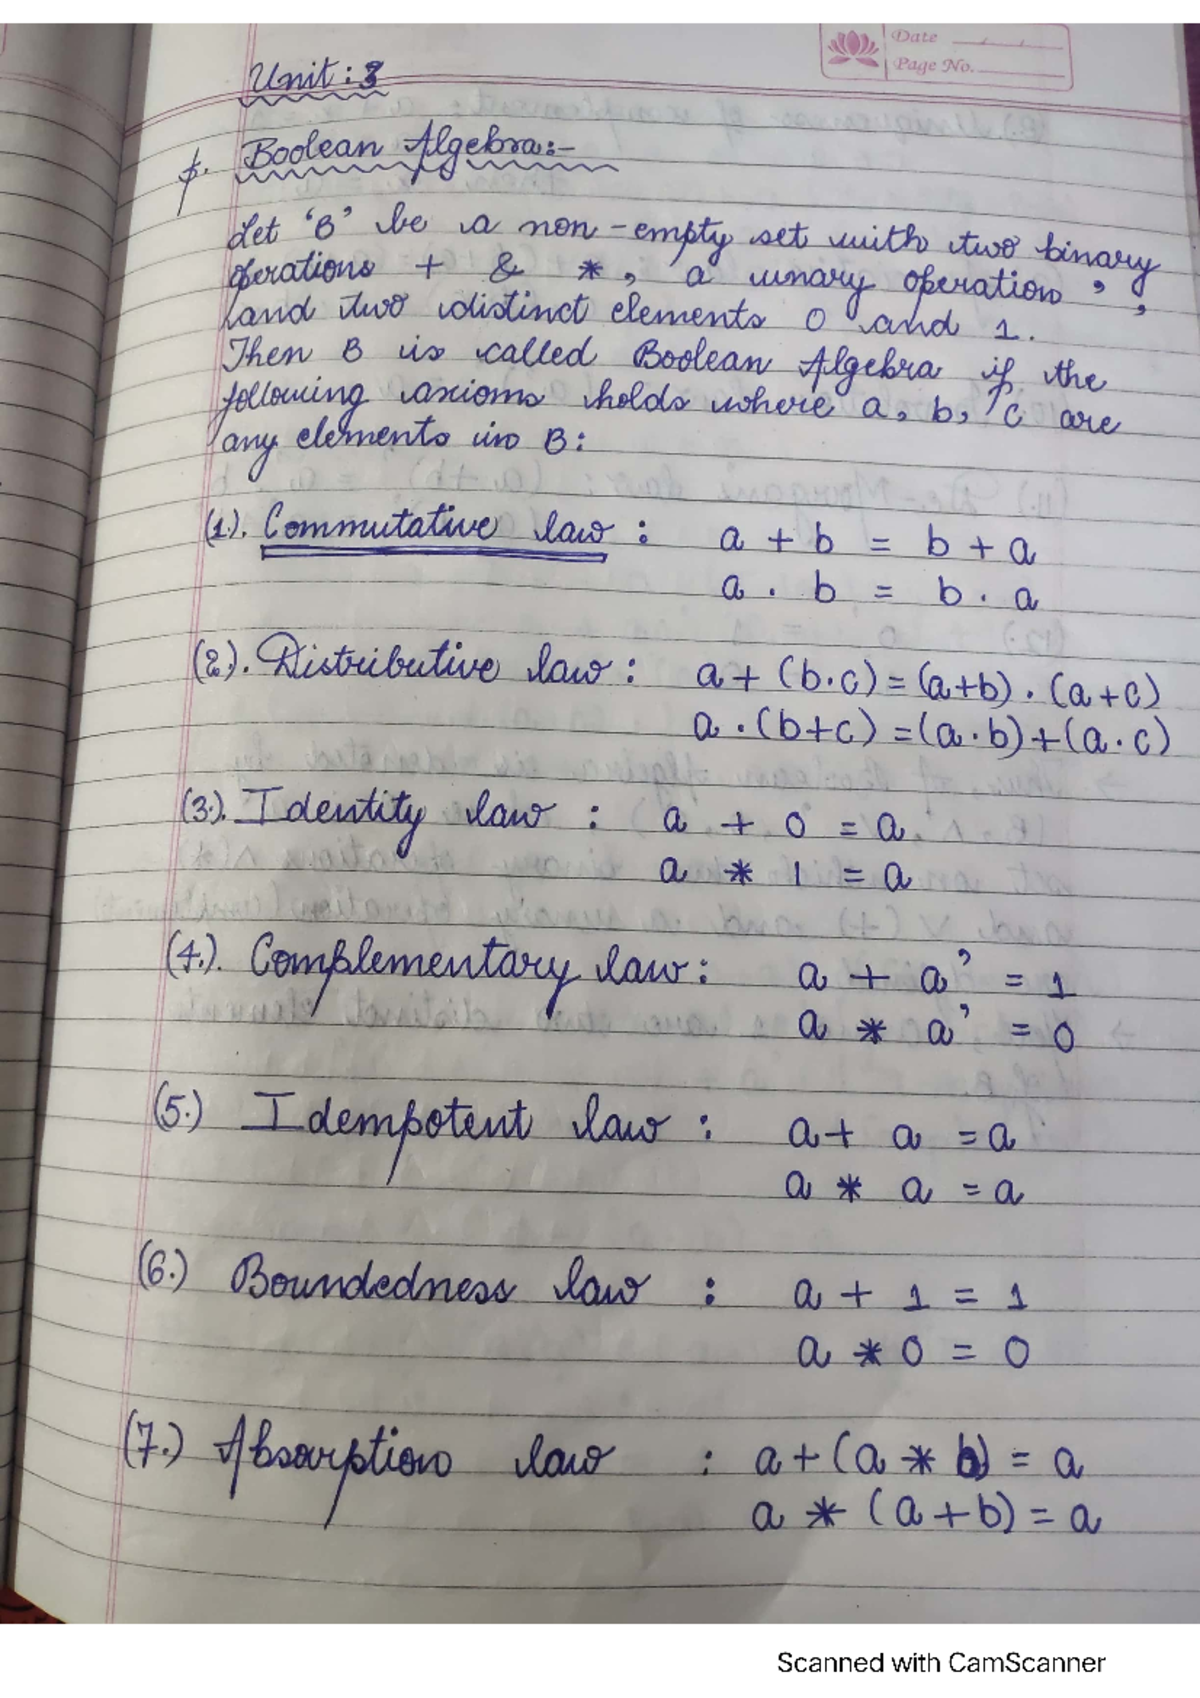 Date
Page No.
Unit : 3
Boolean Algebra:-
Let 'B' be a non-empty set with two binary
operations + & *, a unary operation ',
and two distinct elements 0 and 1.
Then B is called Boolean Algebra if the
following axioms holds where a, b, c are
any elements in B:
(1.). Commutative law : a + b = b + a
a . b = b . a
(2.). Distributive law : a + (b.c) = (a+b) . (a+c)
a . (b+c) = (a.b)+(a.c)
(3.). Identity law : a + 0 = a
a * 1 = a
(4.). Complementary law : a + a' = 1
a * a' = 0
(5.) Idempotent law : a + a = a
a * a = a
(6.) Boundedness law : a + 1 = 1
a * 0 = 0
(7.) Absorption law : a + (a * b) = a
a * (a+b) = a
Scanned with CamScanner